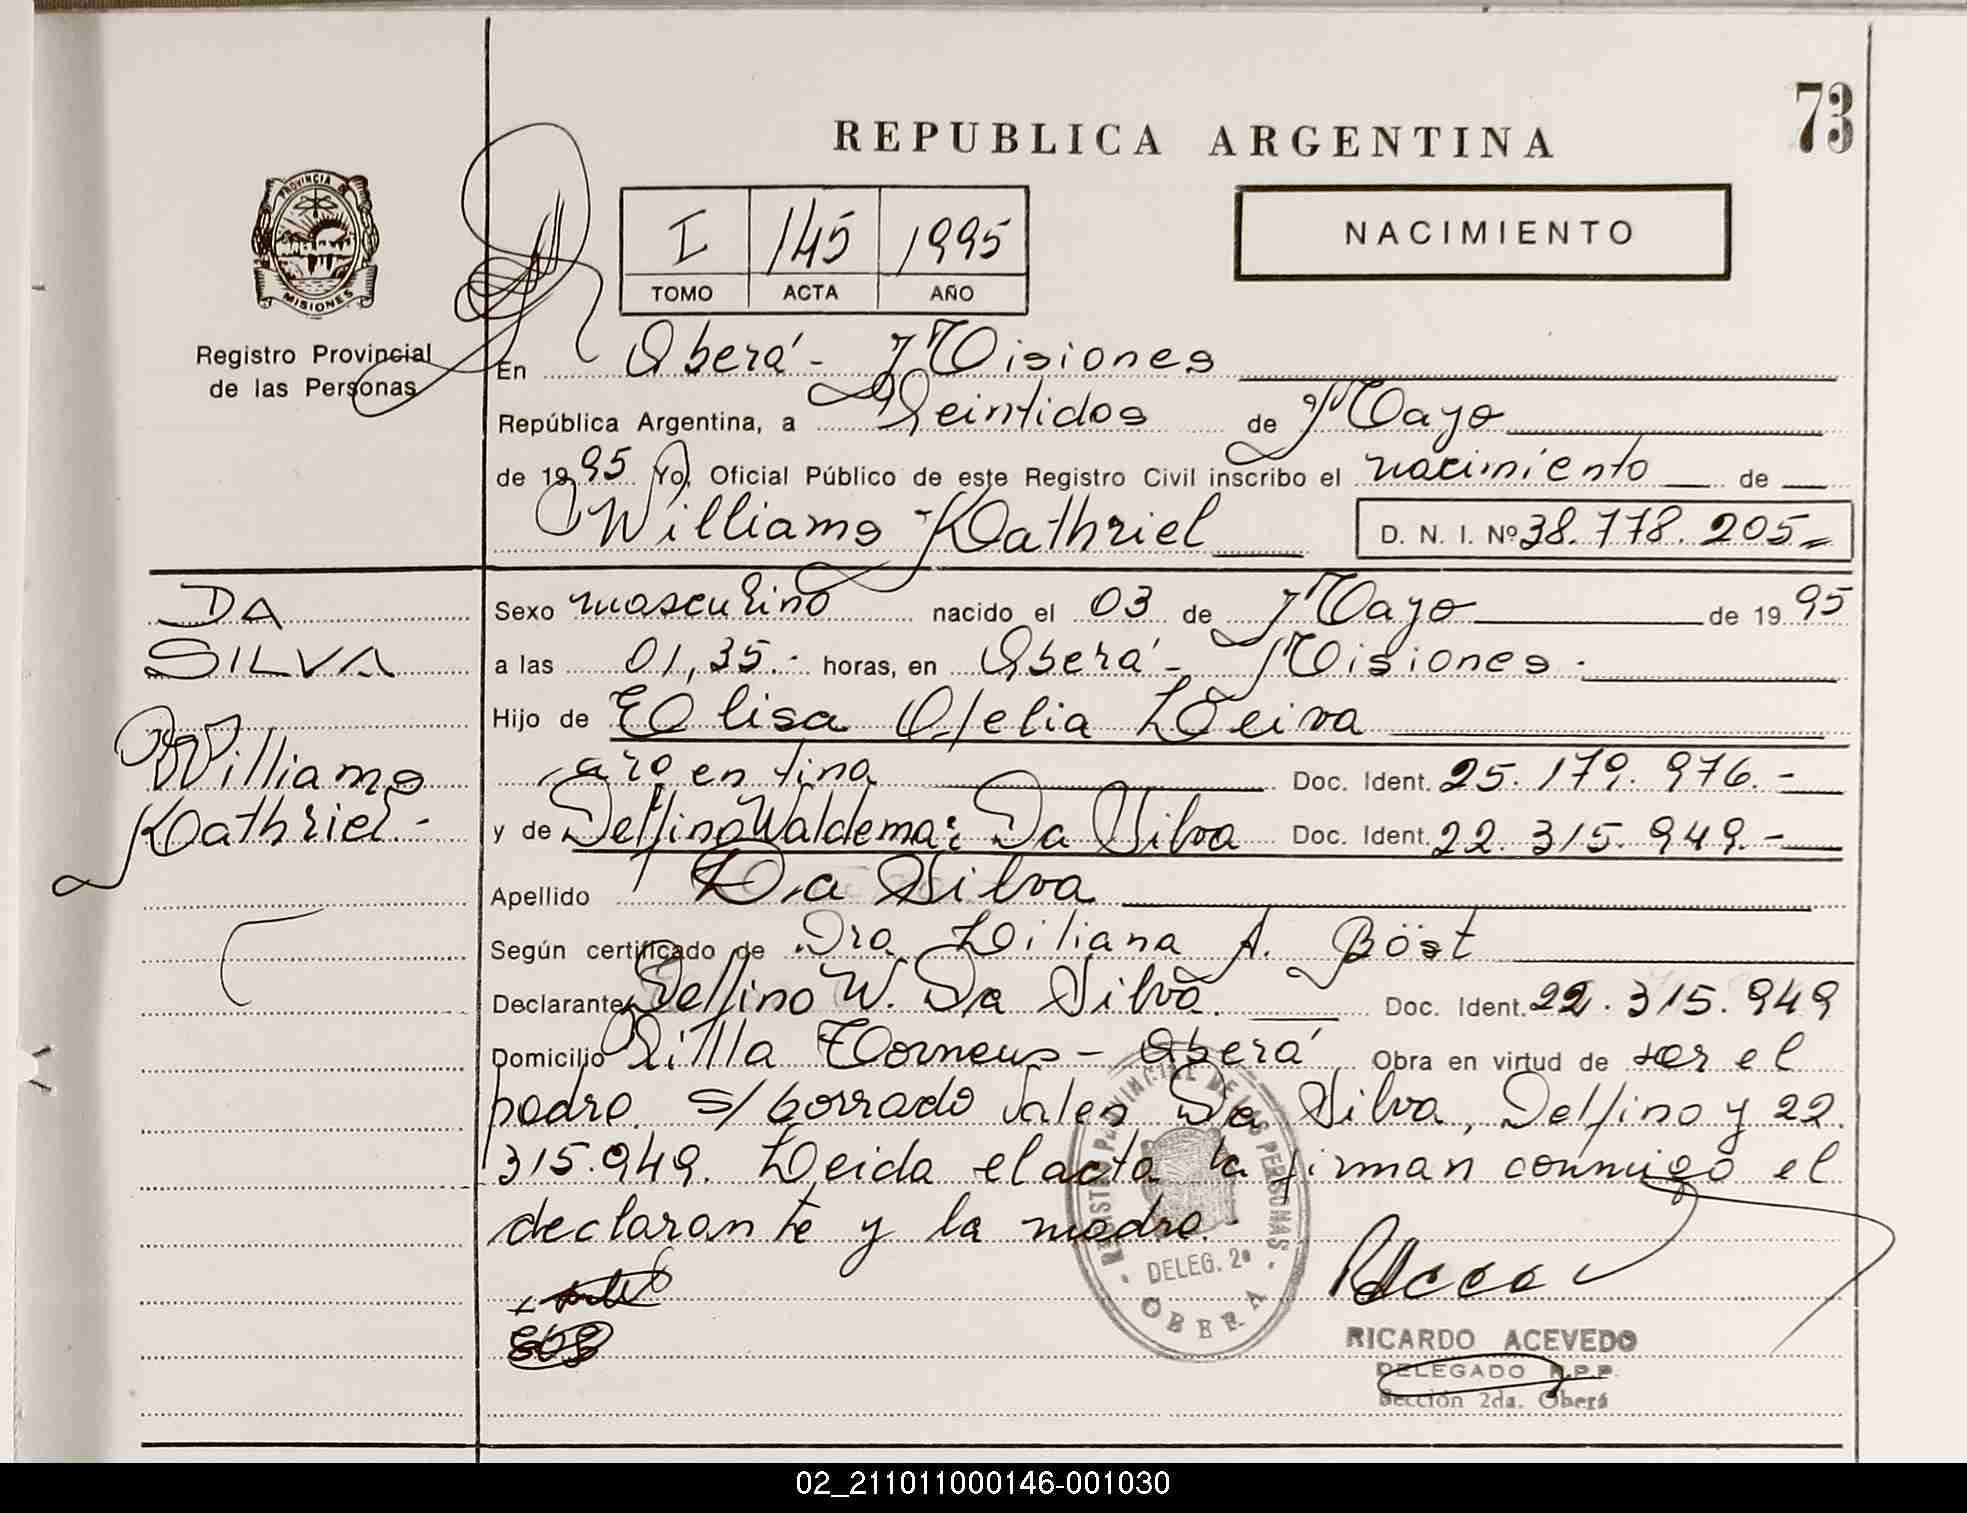 73
REPUBLICA ARGENTINA
PROVINCIA DE
MISIONES
Registro Provincial
de las Personas
I 145 1995
TOMO ACTA AÑO
NACIMIENTO
En Oberá - Misiones
República Argentina, a Veintidos de Mayo
de 1995 Yo, Oficial Público de este Registro Civil inscribo el nacimiento de
Williams Kathriel D. N. I. Nº 38.778.205=
DA
SILVA
Williams
Kathriel.-
Sexo masculino nacido el 03 de Mayo de 1995
a las 01,35.- horas, en Oberá - Misiones.
Hijo de Elisa Ofelia Leiva
argentina Doc. Ident. 25.179.976.-
y de Delfino Waldemar Da Silva Doc. Ident. 22.315.949.-
Apellido Da Silva
Según certificado de Dra Liliana A. Böst
Declarante Delfino W. Da Silva. Doc. Ident. 22.315.949
Domicilio Villa Torneus - Oberá Obra en virtud de ser el
padre. s/borrado Vales Da Silva, Delfino y 22.
315.949. Leida el acta la firman conmigo el
declarante y la madre.
REGISTRO PROVINCIAL DE LAS PERSONAS
DELEG. 2ª
OBERA
RICARDO ACEVEDO
DELEGADO R.P.P.
Sección 2da. Oberá
02_211011000146-001030